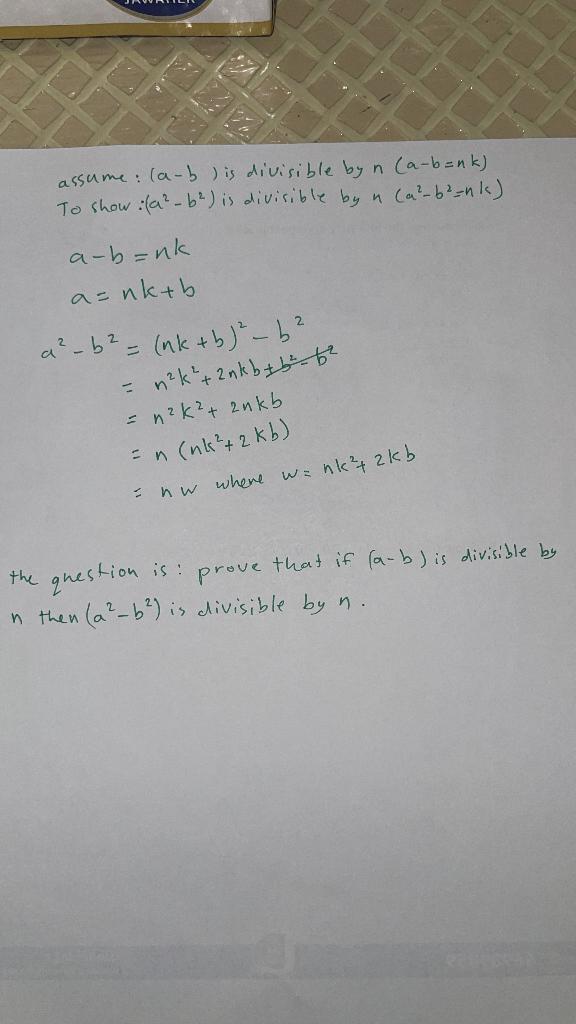 JAWAHER
assume : (a-b) is divisible by n (a-b=nk)
To show :(a²-b²) is divisible by n (a²-b²=nk)
a-b = nk
a = nk+b
a²-b² = (nk+b)² - b²
= n²k² + 2nkb + b² - b²
= n²k² + 2nkb
= n (nk²+2kb)
= nw where w = nk²+ 2kb
the question is : prove that if (a-b) is divisible by
n then (a²-b²) is divisible by n .